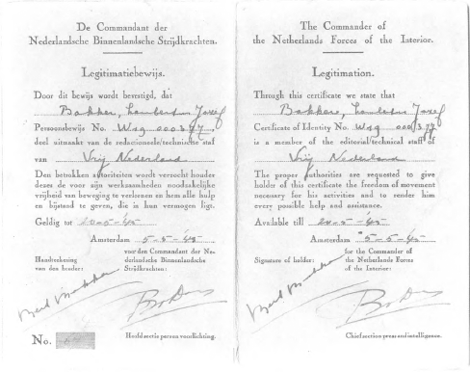 De Commandant der
Nederlandsche Binnenlandsche Strijdkrachten.
Legitimatiebewijs.
Door dit bewijs wordt bevestigd, dat
Bakker, Lambertus Jozef
Persoonsbewijs No. W29 000377
deel uitmaakt van de redactioneele/technische staf
van Vrij Nederland
Den betrokken autoriteiten wordt verzocht houder
dezes de voor zijn werkzaamheden noodzakelijke
vrijheid van beweging te verleenen en hem alle hulp
en bijstand te geven, die in hun vermogen ligt.
Geldig tot 20-5-'45
Amsterdam 5-5-'45
Handteekening
van den houder:
voor den Commandant der Ne-
derlandsche Binnenlandsche
Strijdkrachten:
Bert Bakker
No.
Hoofdsectie pers en voorlichting.
The Commander of
the Netherlands Forces of the Interior.
Legitimation.
Through this certificate we state that
Bakker, Lambertus Jozef
Certificate of Identity No. W29 000377
is a member of the editorial/technical staff of
Vrij Nederland
The proper authorities are requested to give
holder of this certificate the freedom of movement
necessary for his activities and to render him
every possible help and assistance.
Available till 20-5-'45
Amsterdam 5-5-'45
Signature of holder:
for the Commander of
the Netherlands Forces
of the Interior:
Bert Bakker
Chief section press and intelligence.